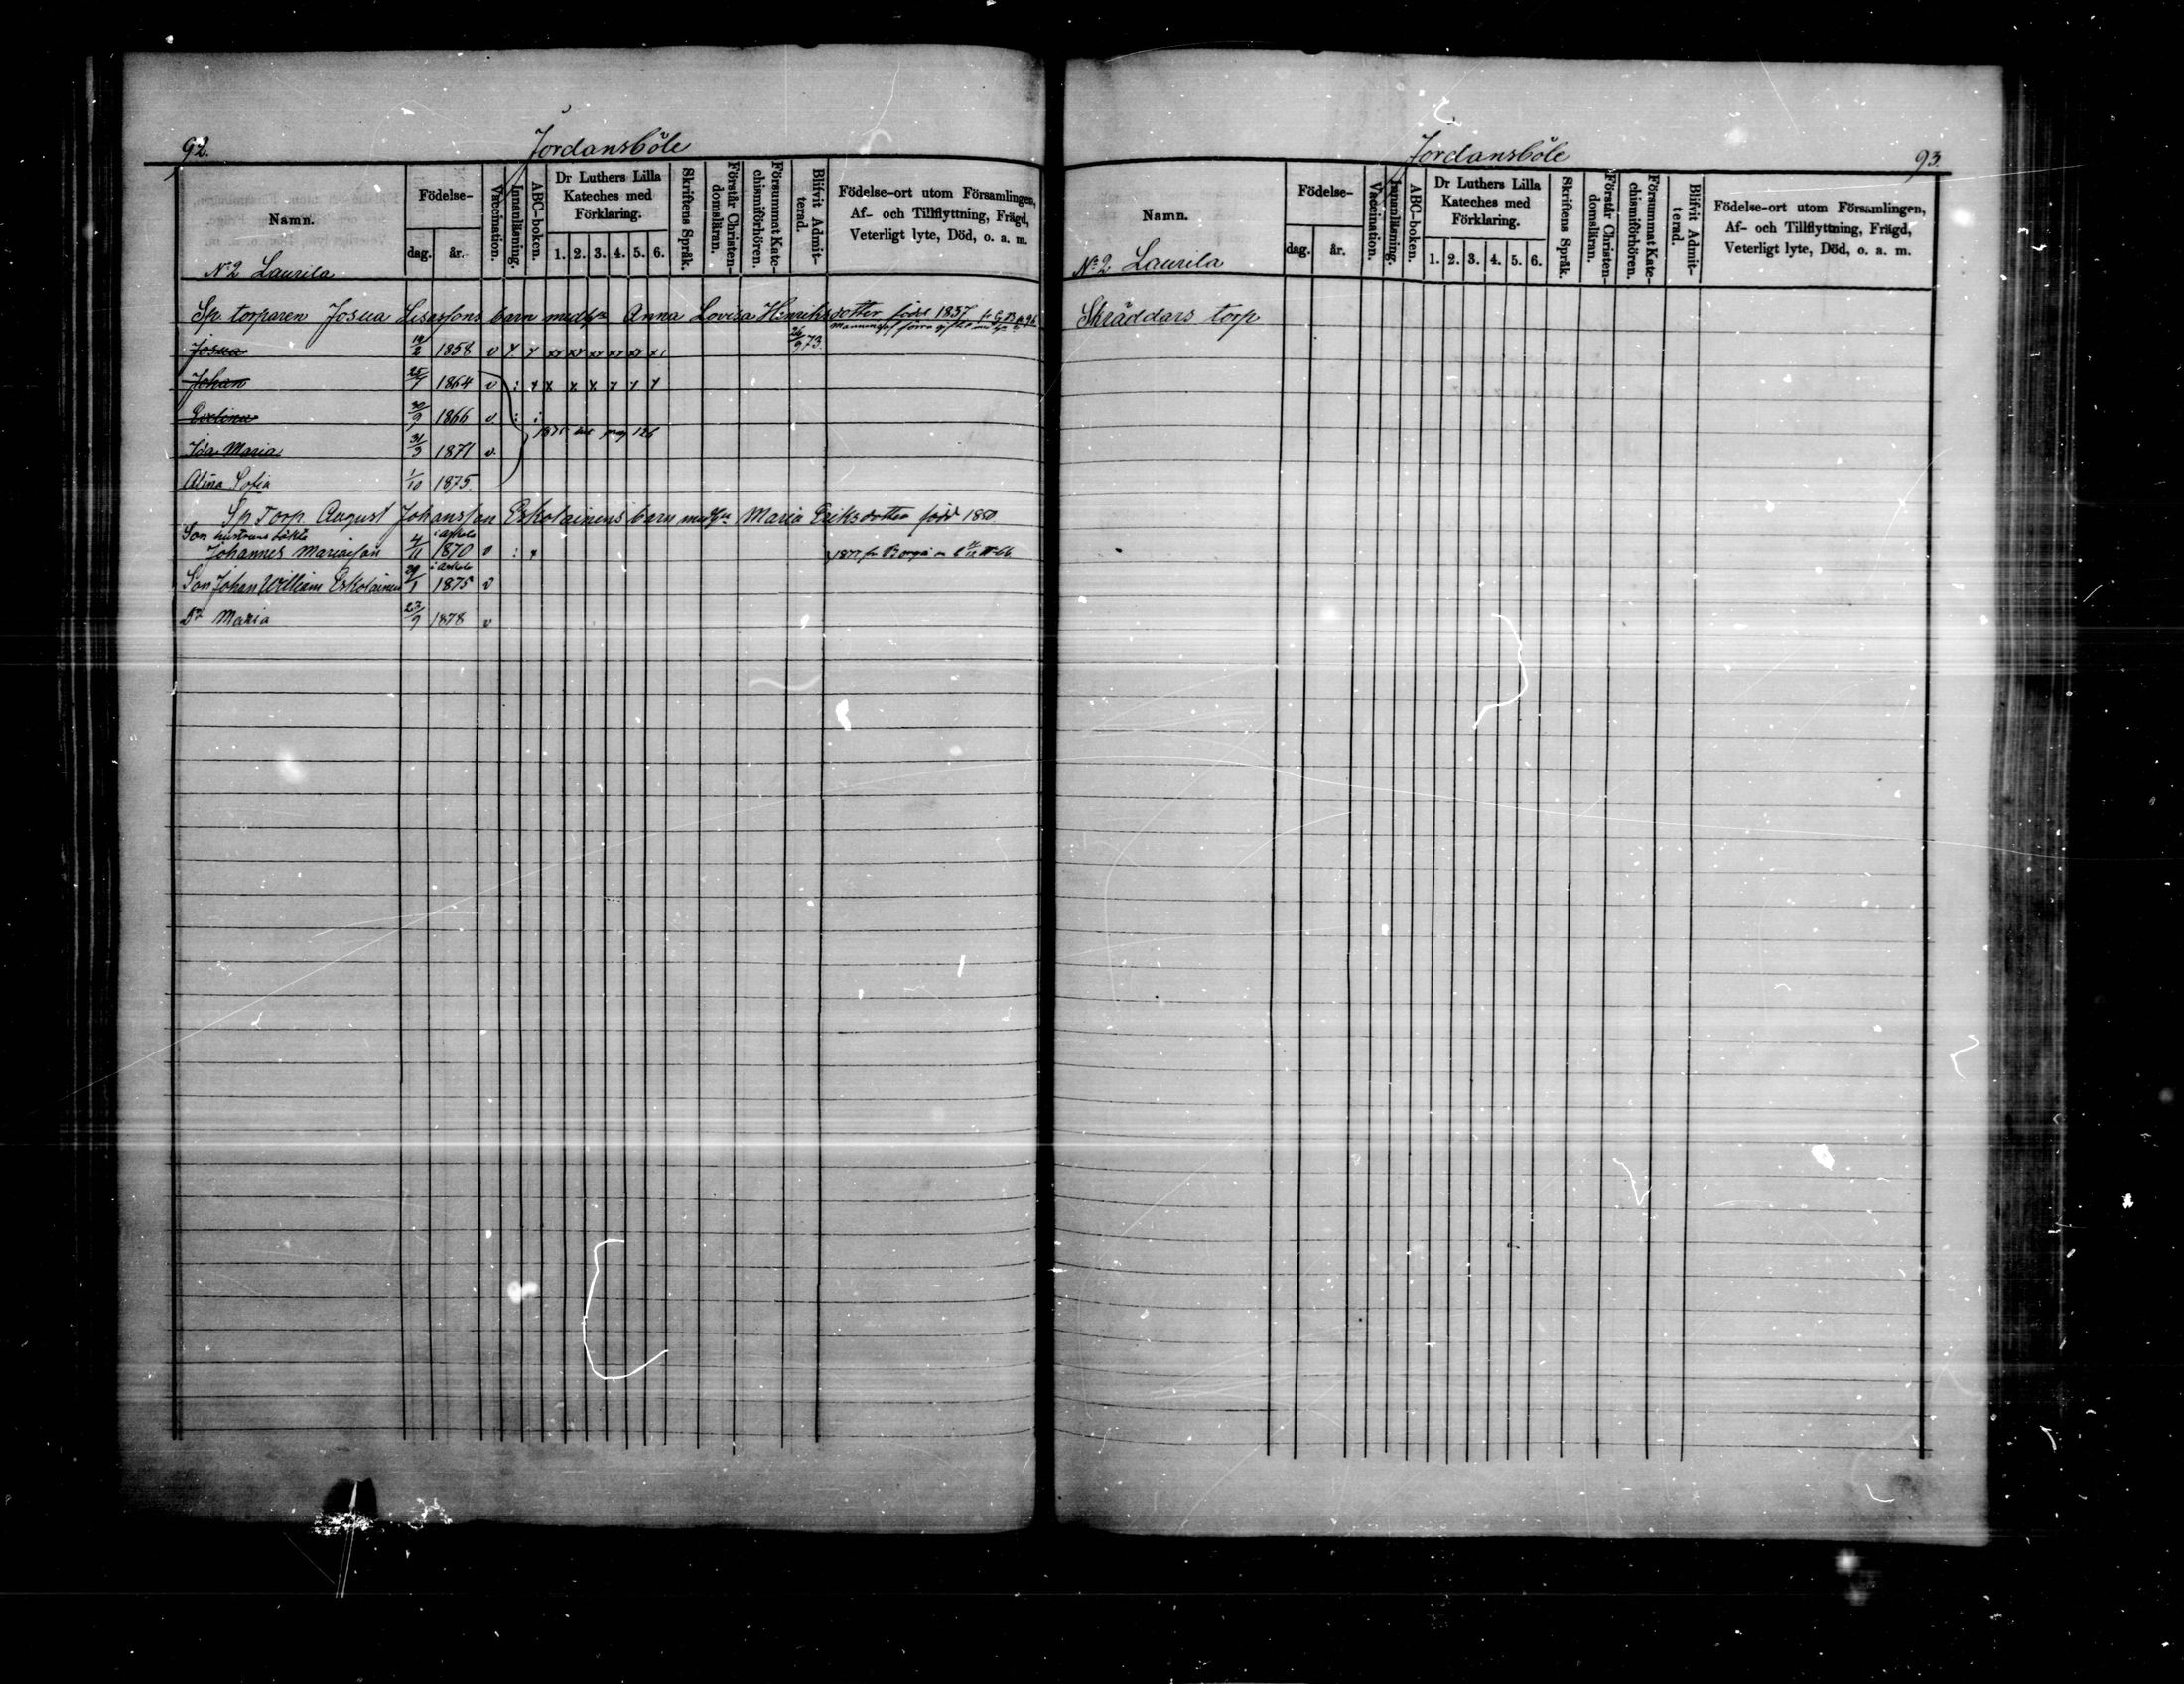 92.
Jordansböle
Namn.
Födelse-
dag.
år.
Vaccination.
Innanläsning.
ABC-boken.
Dr Luthers Lilla
Kateches med
Förklaring.
1. 2. 3. 4. 5. 6.
Skriftens Språk.
Förstår Christen-
domsläran.
Försummat Kate-
chismiförhören.
Blifvit Admit-
terad.
Födelse-ort utom Församlingen,
Af- och Tillflyttning, Frägd,
Veterligt lyte, Död, o. a. m.
No 2 Laurila
Sp. torparen Josua barn Anna Lovisa Henriksdotter född 1837
Josua 19/2 1858 v 73.
Johan 25/7 1864 v
Evelina 30/9 1866 v
1875 pag 126
Ida Maria 31/3 1871 v
Alina Sofia 1/10 1875.
Sp Torp. August Johansson Eskolainens barn Maria Eriksdotter född 1850
Son hustruns oäkta
Johannes 4/11 1870 v 1877 fr Borgå
Son Johan William Eskolainen 29/1 1875 v
Dr Maria 23/9 1878 v
Jordansböle
93.
Namn.
Födelse-
dag.
år.
Vaccination.
Innanläsning.
ABC-boken.
Dr Luthers Lilla
Kateches med
Förklaring.
1. 2. 3. 4. 5. 6.
Skriftens Språk.
Förstår Christen-
domsläran.
Försummat Kate-
chismiförhören.
Blifvit Admit-
terad.
Födelse-ort utom Församlingen,
Af- och Tillflyttning, Frägd,
Veterligt lyte, Död, o. a. m.
No 2 Laurila
Skräddars torp